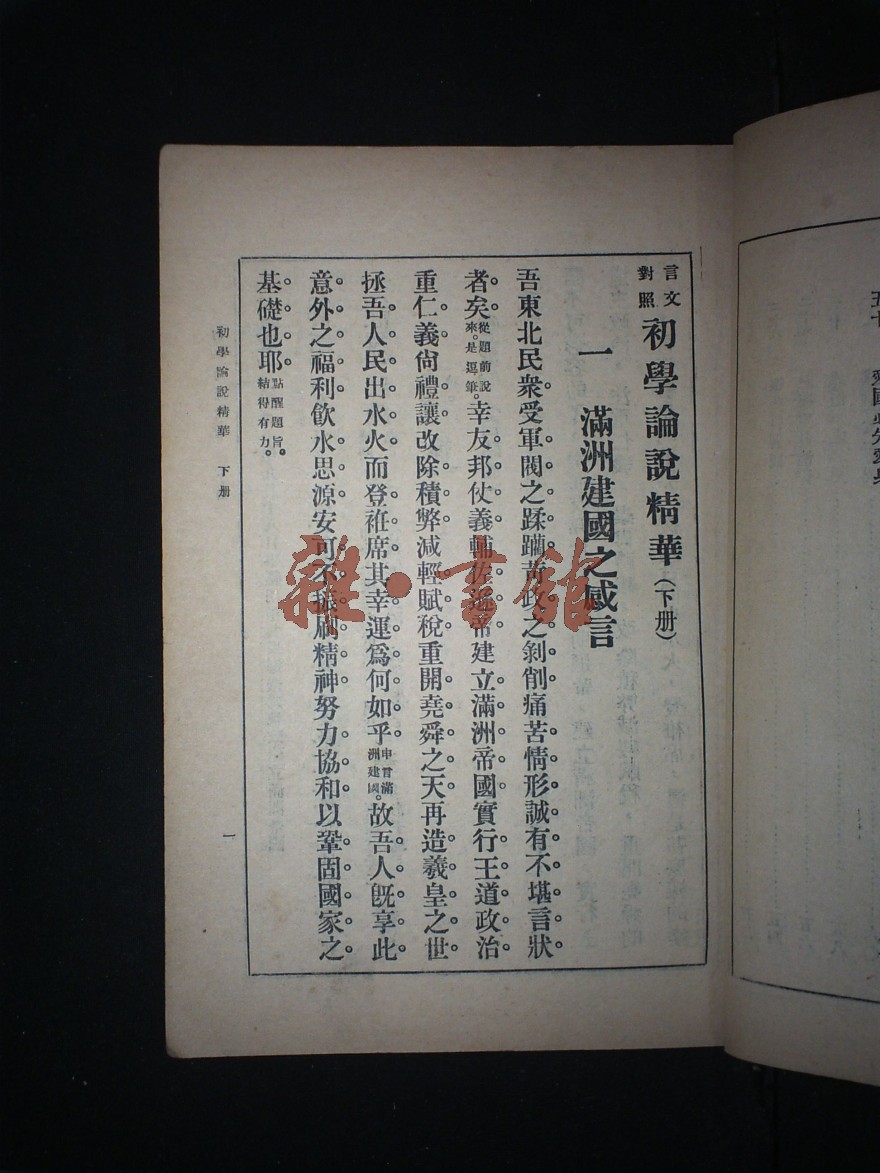 言文對照 初學論說精華（下册）
一 滿洲建國之感言
吾東北民衆受軍閥之蹂躪苛政之剝削痛苦情形誠有不堪言狀
者矣。從題前說來。是逗筆。幸友邦仗義輔佐遜帝建立滿洲帝國實行王道政治
重仁義尙禮讓改除積弊減輕賦稅重開堯舜之天再造羲皇之世
拯吾人民出水火而登袵席其幸運爲何如乎。申言滿洲建國。故吾人旣享此
意外之福利飮水思源安可不振刷精神努力協和以鞏固國家之
基礎也耶。點醒題旨。結得有力。
初學論說精華 下册
一
雜·書館
五十
愛國必先愛身